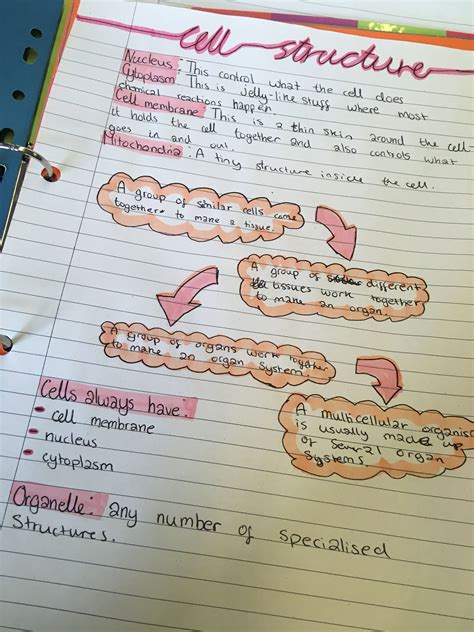 Cell structure
Nucleus: This control what the cell does
Cytoplasm: This is Jelly-like stuff where most
chemical reactions happen.
Cell membrane: This is a thin skin around the cell-
it holds the cell together and also controls what
goes in and out.
Mitochondria: A tiny structure inside the cell.
A group of similar cells come
together to make a tissue.
A group of different
tissues work together
to make an organ.
A group of organs work together
to make an organ System.
A multicellular organism
is usually made up
of several organ
Systems.
Cells always have:
cell membrane
nucleus
cytoplasm
Organelle: any number of specialised
Structures.